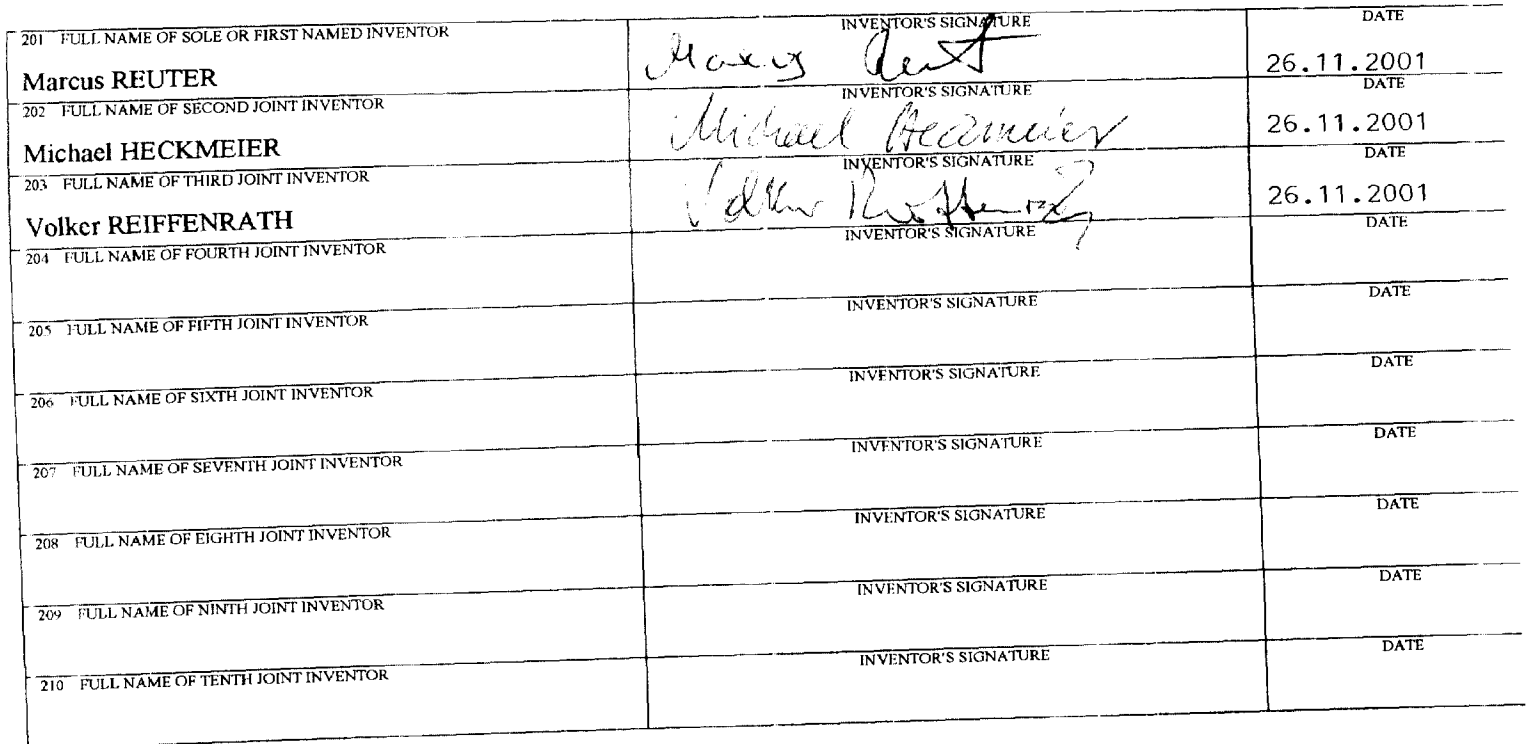 201 FULL NAME OF SOLE OR FIRST NAMED INVENTOR INVENTOR'S SIGNATURE DATE
Marcus REUTER Marcus Reut 26.11.2001
202 FULL NAME OF SECOND JOINT INVENTOR INVENTOR'S SIGNATURE DATE
Michael HECKMEIER Michael Heckmeier 26.11.2001
203 FULL NAME OF THIRD JOINT INVENTOR INVENTOR'S SIGNATURE DATE
Volker REIFFENRATH Volker 26.11.2001
204 FULL NAME OF FOURTH JOINT INVENTOR INVENTOR'S SIGNATURE DATE
205 FULL NAME OF FIFTH JOINT INVENTOR INVENTOR'S SIGNATURE DATE
206 FULL NAME OF SIXTH JOINT INVENTOR INVENTOR'S SIGNATURE DATE
207 FULL NAME OF SEVENTH JOINT INVENTOR INVENTOR'S SIGNATURE DATE
208 FULL NAME OF EIGHTH JOINT INVENTOR INVENTOR'S SIGNATURE DATE
209 FULL NAME OF NINTH JOINT INVENTOR INVENTOR'S SIGNATURE DATE
210 FULL NAME OF TENTH JOINT INVENTOR INVENTOR'S SIGNATURE DATE